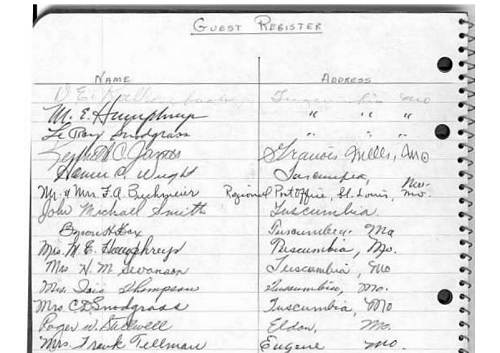 GUEST REGISTER
NAME ADDRESS
M. E. Humphrey " " "
Le Roy Snodgrass " " "
Kenneth C. James Francis Mills, Mo
Homer A. Wright Tuscumbia,
Mr. & Mrs. F. A. Buehmeier Regional Post Office, St. Louis, Mo.
John Michael Smith Tuscumbia.
Byron H. Tuscumbia, Mo
Mrs. W. E. Humphreys Tuscumbia, Mo.
Mrs H. M. Swanson Tuscumbia, Mo
Mrs. Thompson Tuscumbia, Mo.
Mrs C D Snodgrass Tuscumbia, Mo
Roger W. Eldon, Mo.
Mrs. Frank Tillman Eugene Mo.